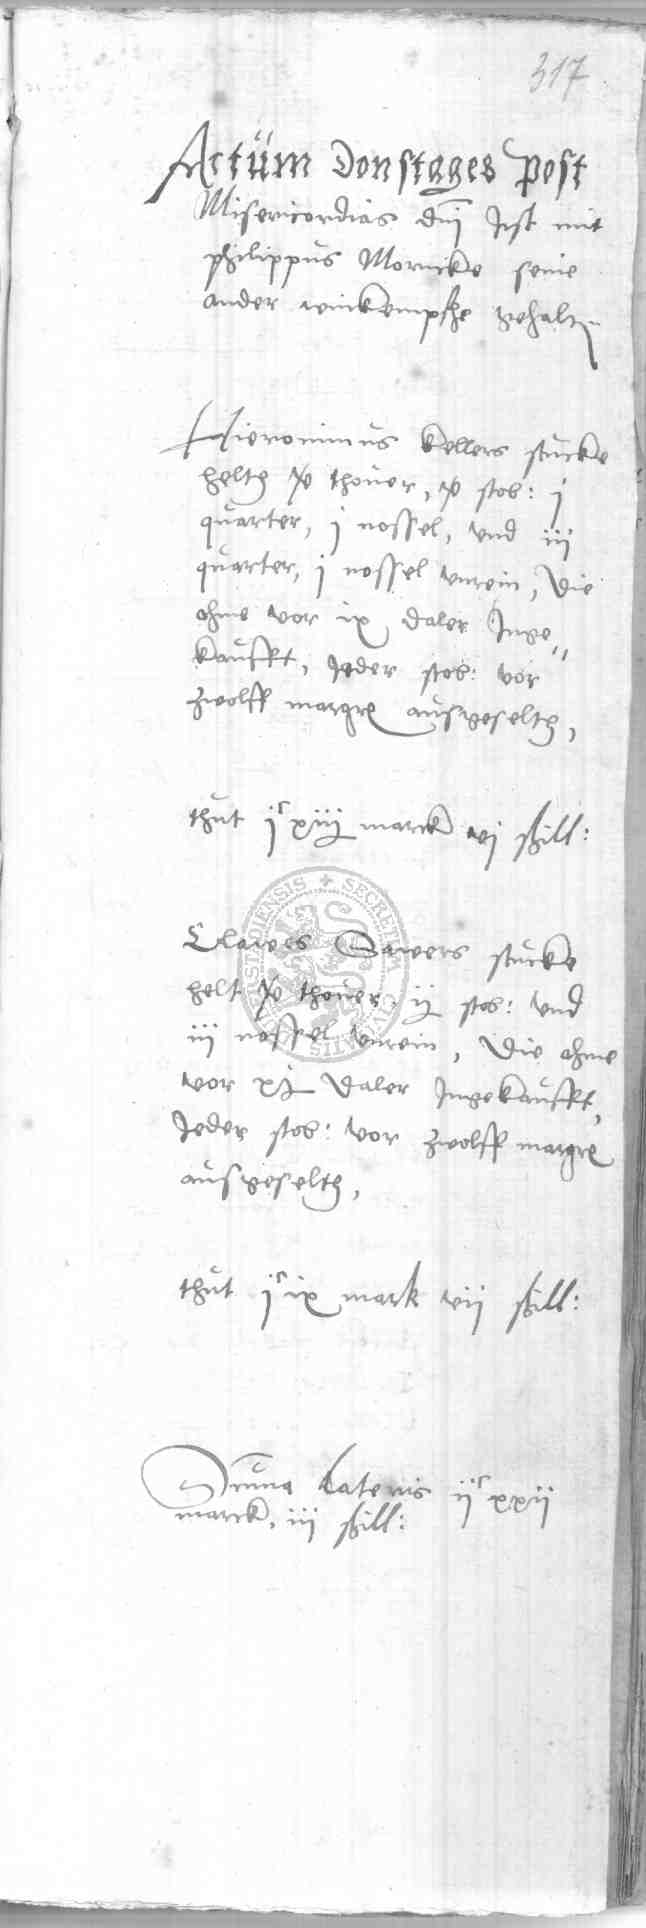 317
Actum Donstages post
Misericordias dni Ist mit
philippus Mornicke seine
ander winkempffe gehalten
Hieronimus Kellers stucke
helth thouer, stob: j
quarter, j nossel, vnd iij
quarter, j nossel vnrein, Die
ohme vor ix daler Inge„
kaufft, Jeder stob: vor
zwolff margr ausgeselth,
thut jᶜ xiij marck vj ßill:
Clawes Sawers stucke
helt thouer, ij stob: vnd
iij nossel vnrein, Die ohme
vor Daler Ingekaufft,
Jeder stob: vor zwolff margr
ausgeselth,
thut jᶜ ix mark vij ßill:
Summa Lateris ijᶜ xxij
marck, iij ßill:
SECRETUM CIVITATIS